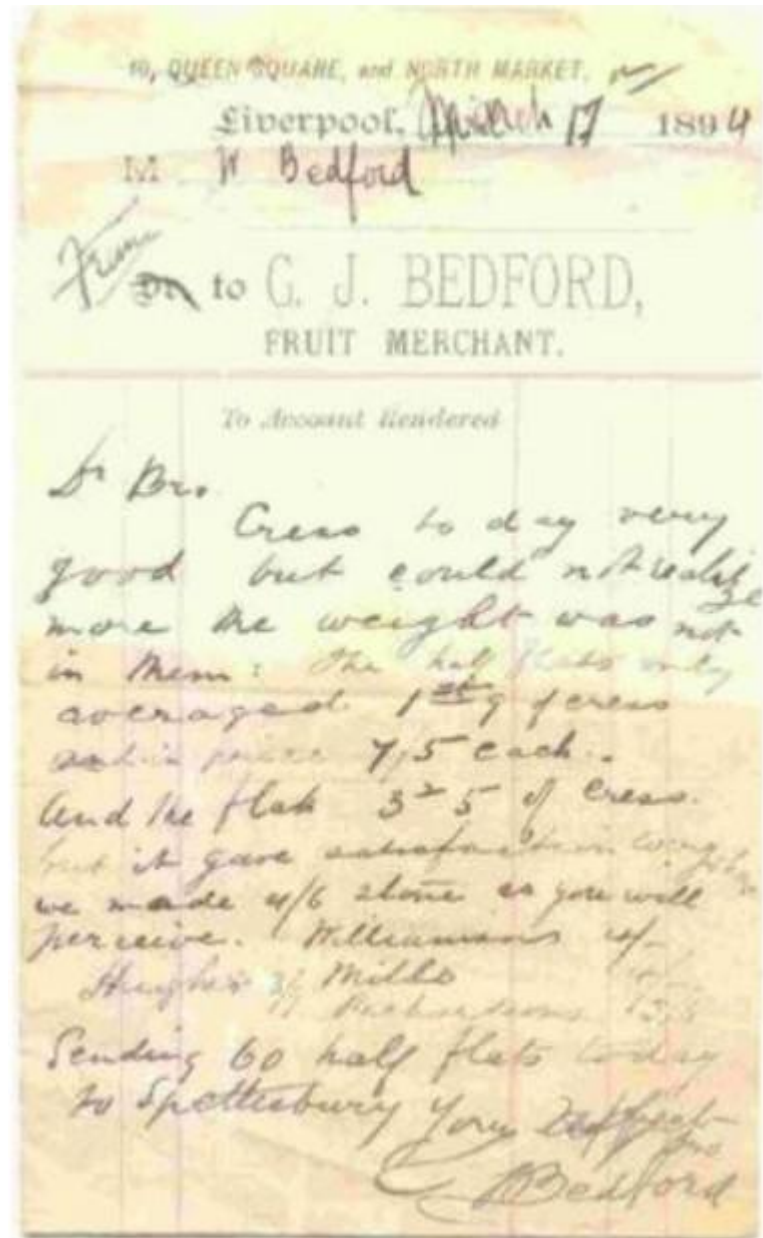 19, QUEEN SQUARE, and NORTH MARKET.
Liverpool, March 17 1894
M W Bedford
From
Dr to G. J. BEDFORD,
FRUIT MERCHANT.
To Account Rendered
Dr Bro.
Cress to day very
good but could not realize
more the weight was not
in them: The half flats only
averaged 1st 9 of cress
7/5 each.
And the flats 3st 5 of Cress.
but it gave satisfaction
we made 4/6 stone as you will
perceive. Williamsons 4/-
Hughes Mills
Richardsons
Sending 60 half flats today
to Spettisbury Yours
Bedford